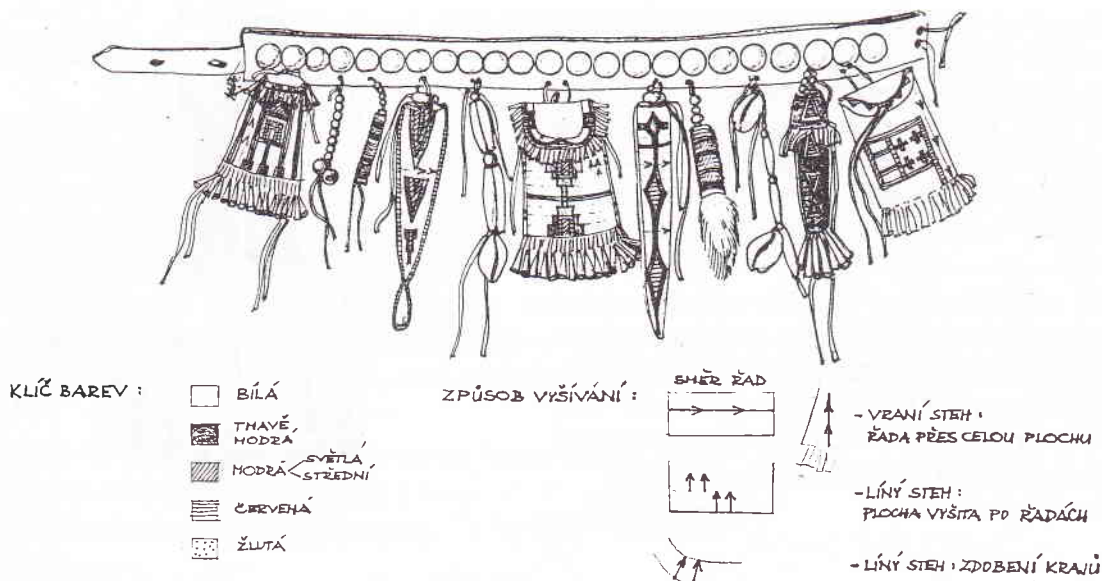 KLÍČ BAREV :
BÍLÁ
TMAVĚ
MODRÁ
MODRÁ
SVĚTLÁ
STŘEDNÍ
ČERVENÁ
ŽLUTÁ
ZPŮSOB VYŠÍVÁNÍ :
SMĚR ŘAD
- VRANÍ STEH :
ŘADA PŘES CELOU PLOCHU
- LÍNÝ STEH :
PLOCHA VYŠITA PO ŘADÁCH
- LÍNÝ STEH : ZDOBENÍ KRAJŮ